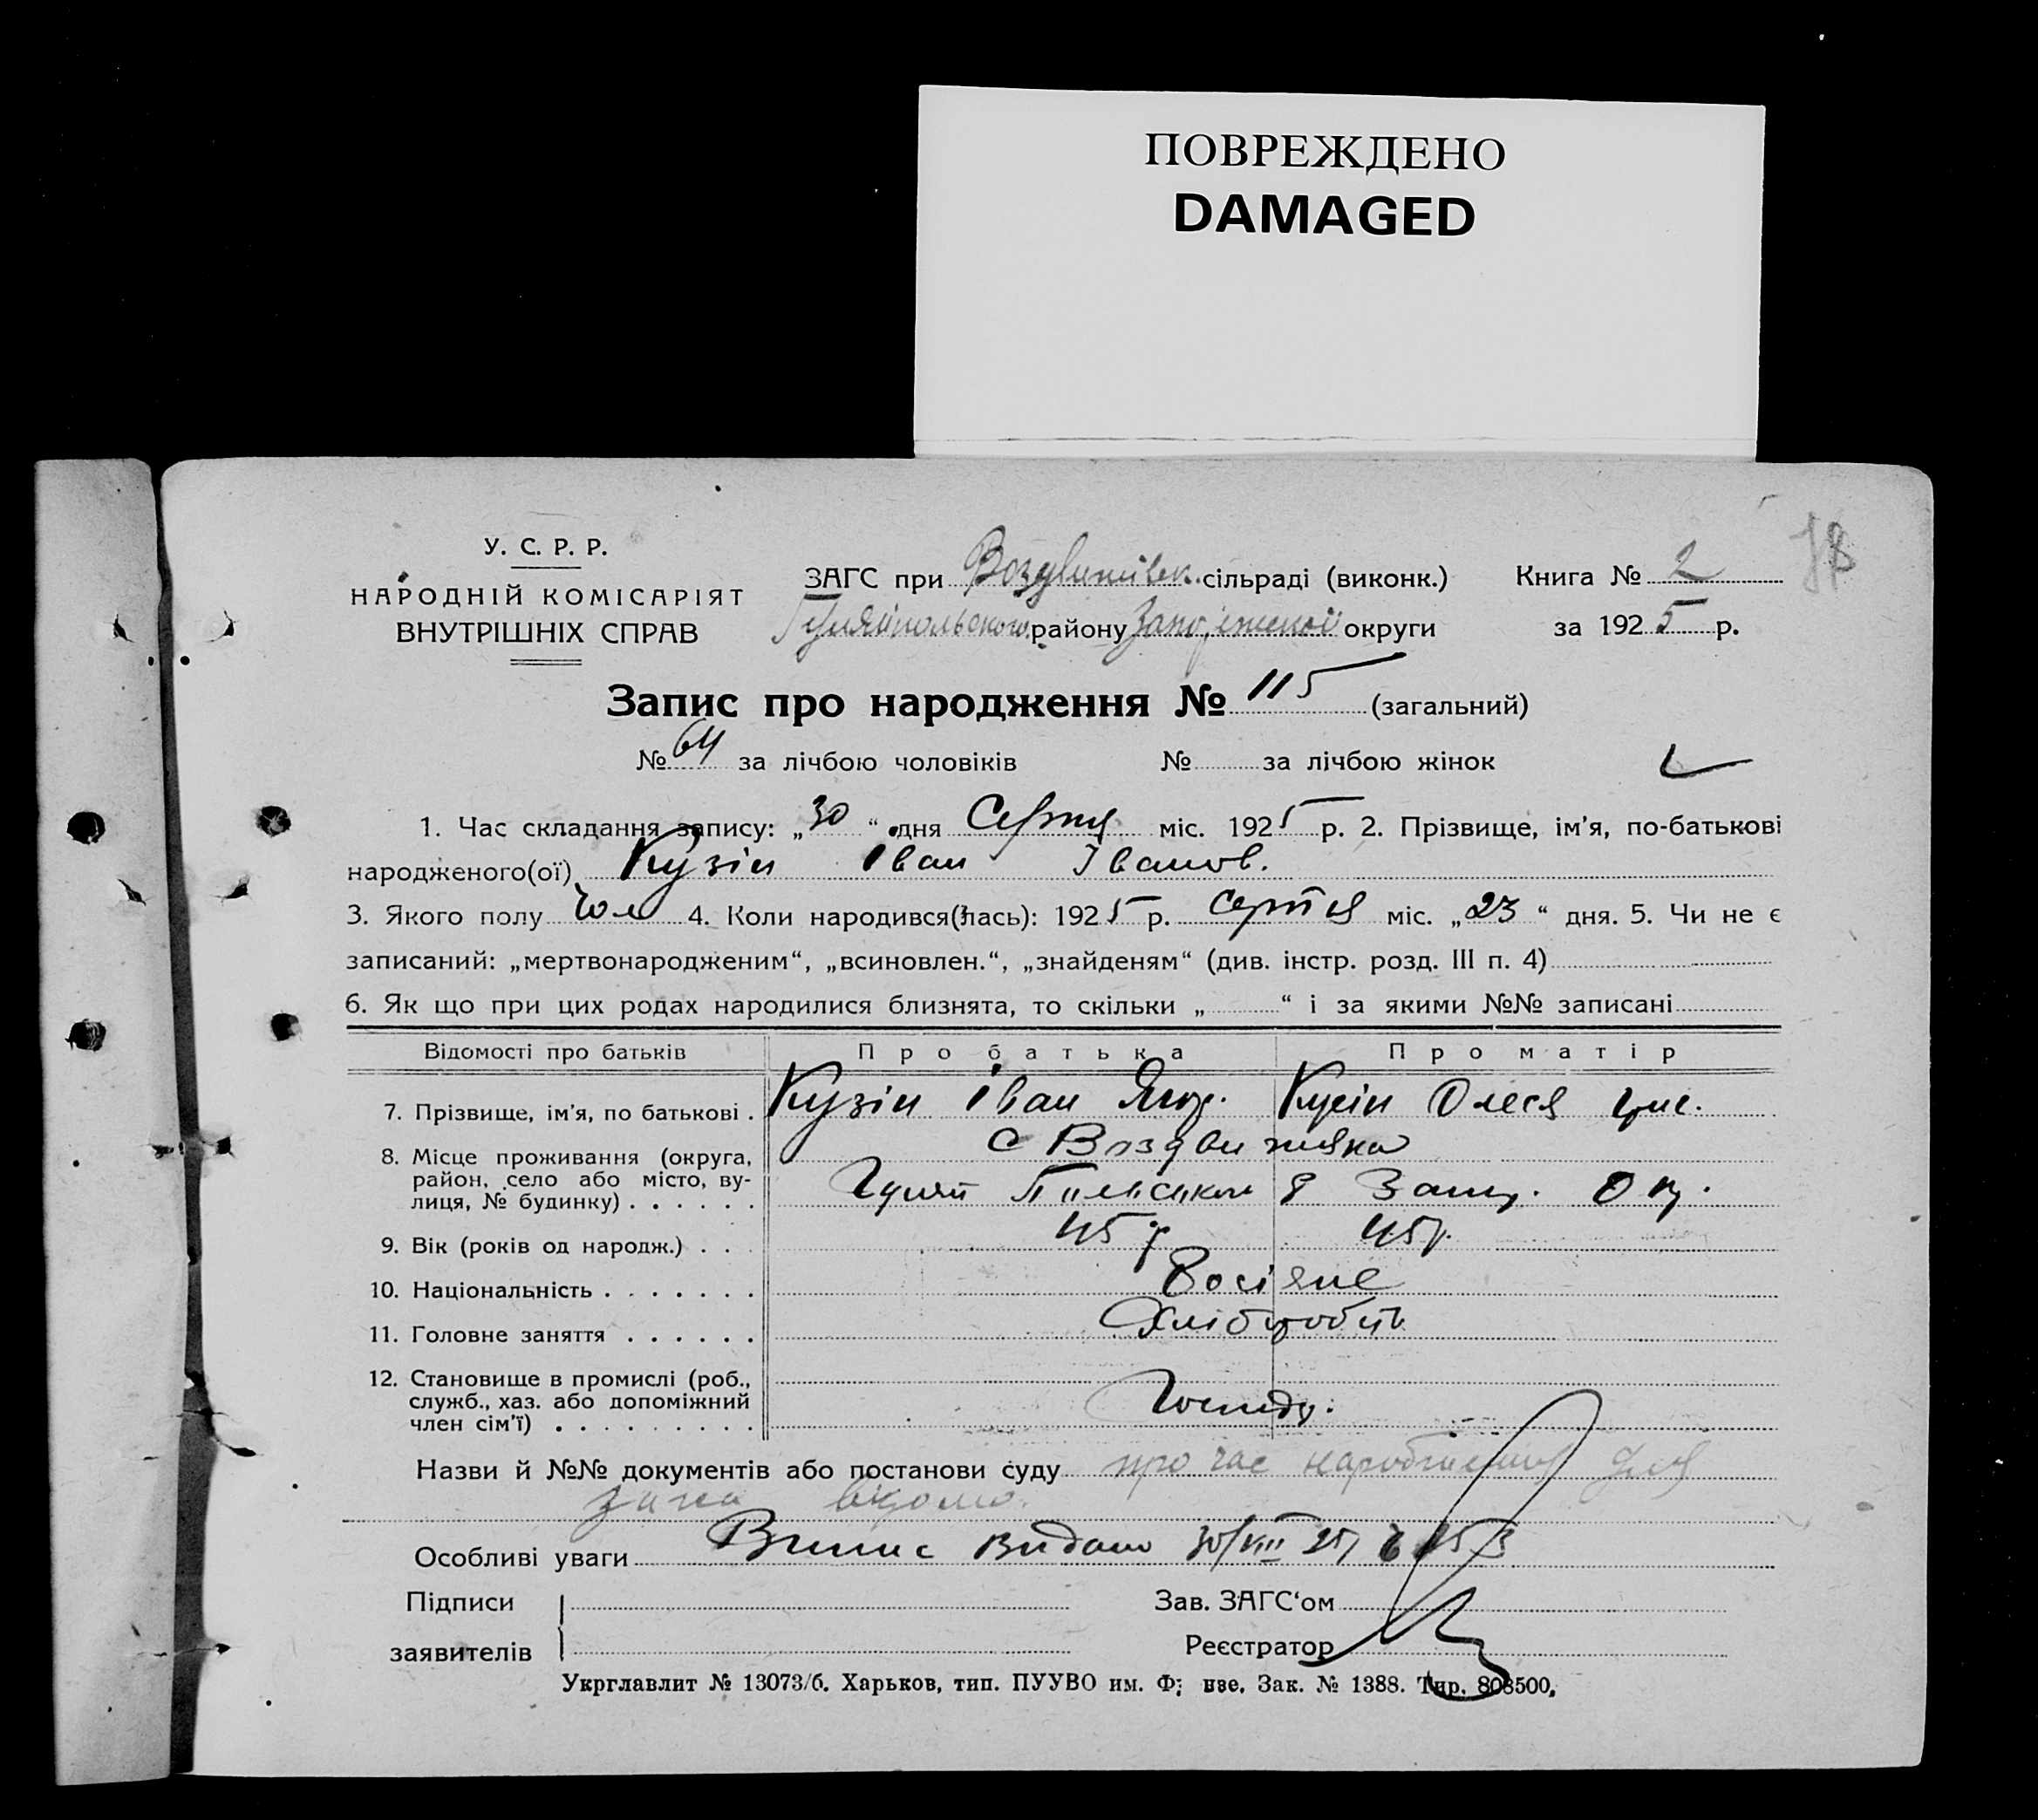 ПОВРЕЖДЕНО
DAMAGED
У. С. Р. Р.
НАРОДНІЙ КОМІСАРІЯТ
ВНУТРІШНІХ СПРАВ
ЗАГС при Воздвижівськ. сільраді (виконк.)
Гуляйпольського району Запоріжської округи
Книга № 2
за 1925 р.
Запис про народження № 115 (загальний)
№ 64 за лічбою чоловіків № за лічбою жінок
1. Час складання запису: „30“ дня Серпня міс. 1925 р. 2. Прізвище, ім'я, по-батькові
народженого(ої) Кузін Іван Іванов.
3. Якого полу чол 4. Коли народився(лась): 1925 р. серпня міс. „23“ дня. 5. Чи не є
записаний: „мертвонародженим“, „всиновлен.“, „знайденям“ (див. інстр. розд. III п. 4)
6. Як що при цих родах народилися близнята, то скільки „ “ і за якими №№ записані
Відомості про батьків Про батька Про матір
7. Прізвище, ім'я, по батькові . Кузін Іван Кузін Олеся
8. Місце проживання (округа, с Воздвижівка
район, село або місто, ву- Гуляй Пільського р Запор. Окр.
лиця, № будинку) . . . . . .
9. Вік (років од народж.) . . . 45 р 45 р.
10. Національність . . . . . . . Росіяне
11. Головне заняття . . . . . . Хлібороби
12. Становище в промислі (роб.,
служб., хаз. або допоміжний Господ.
член сім'ї) . . . . . . . . .
Назви й №№ документів або постанови суду про час народження
Особливі уваги Випис видано 30/VIII 25
Підписи
заявителів
Зав. ЗАГС'ом
Реєстратор
Укрглавлит № 13073/б. Харьков, тип. ПУУВО им. Ф нзе. Зак. № 1388. Тир. 808500,